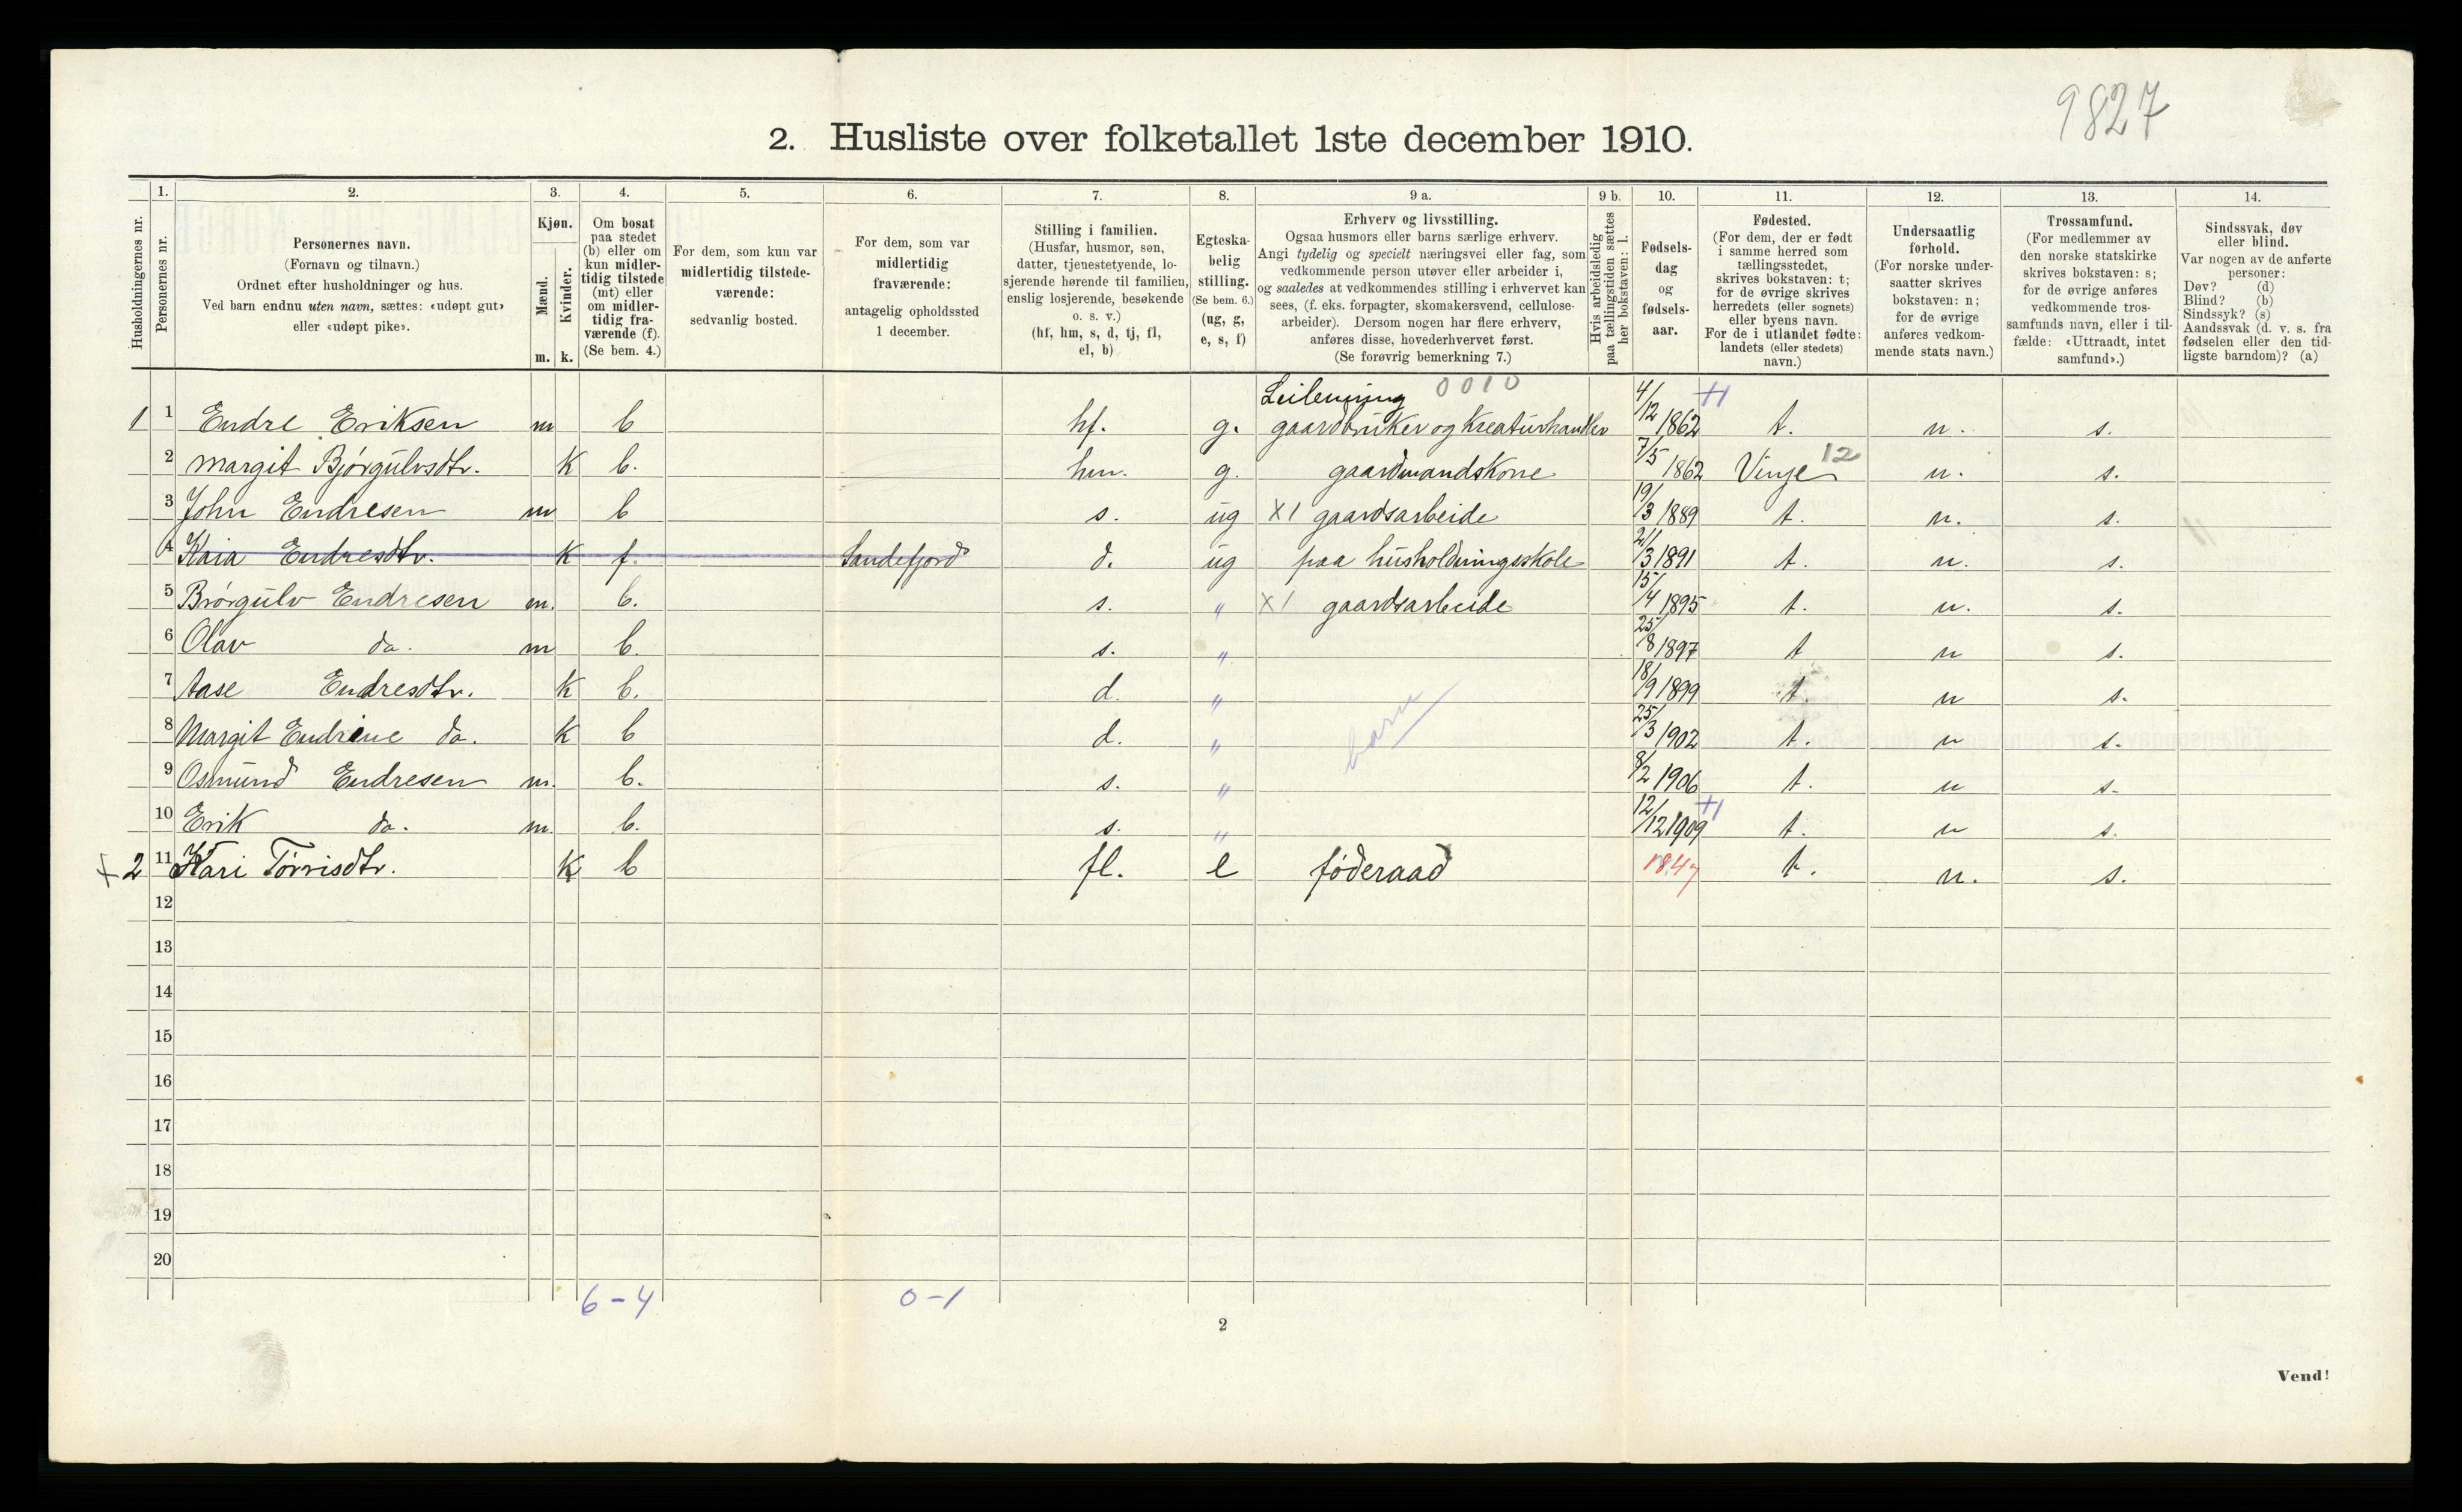 9827
2. Husliste over folketallet 1ste december 1910.
Husholdningernes nr.
1.
Personernes nr.
2.
Personernes navn.
(Fornavn og tilnavn.)
Ordnet efter husholdninger og hus.
Ved barn endnu uten navn, sættes: «udøpt gut»
eller «udøpt pike».
3.
Kjøn.
Mænd.
Kvinder.
m. k.
4.
Om bosat
paa stedet
(b) eller om
kun midler-
tidig tilstede
(mt) eller
om midler-
tidig fra-
værende (f).
(Se bem. 4.)
5.
For dem, som kun var
midlertidig tilstede-
værende:
sedvanlig bosted.
6.
For dem, som var
midlertidig
fraværende:
antagelig opholdssted
1 december.
7.
Stilling i familien.
(Husfar, husmor, søn,
datter, tjenestetyende, lo-
sjerende hørende til familien,
enslig losjerende, besøkende
o. s. v.)
(hf, hm, s, d, tj, fl,
el, b)
8.
Egteska-
belig
stilling.
(Se bem. 6.)
(ug, g,
e, s, f)
9 a.
Erhverv og livsstilling.
Ogsaa husmors eller barns særlige erhverv.
Angi tydelig og specielt næringsvei eller fag, som
vedkommende person utøver eller arbeider i,
og saaledes at vedkommendes stilling i erhvervet kan
sees, (f. eks. forpagter, skomakersvend, cellulose-
arbeider). Dersom nogen har flere erhverv,
anføres disse, hovederhvervet først.
(Se forøvrig bemerkning 7.)
9 b.
Hvis arbeidsledig
paa tællingstiden sættes
her bokstaven: l.
10.
Fødsels-
dag
og
fødsels-
aar.
11.
Fødested.
(For dem, der er født
i samme herred som
tællingsstedet,
skrives bokstaven: t;
for de øvrige skrives
herredets (eller sognets)
eller byens navn.
For de i utlandet fødte:
landets (eller stedets)
navn.)
12.
Undersaatlig
forhold.
(For norske under-
saatter skrives
bokstaven: n;
for de øvrige
anføres vedkom-
mende stats navn.)
13.
Trossamfund.
(For medlemmer av
den norske statskirke
skrives bokstaven: s;
for de øvrige anføres
vedkommende tros-
samfunds navn, eller i til-
fælde: «Uttraadt, intet
samfund».)
14.
Sindssvak, døv
eller blind.
Var nogen av de anførte
personer:
Døv? (d)
Blind? (b)
Sindssyk? (s)
Aandssvak (d. v. s. fra
fødselen eller den tid-
ligste barndom)? (a)
Leilending 0010
1 1 Endre Eriksen m b hf. g. gaardbruker og Kreaturhandler 4/12 1862 t. n. s.
2 Margit Bjørgulvsdtr. K b. hm. g. gaardmandskone 7/5 1862 Vinje 12 n. s.
3 John Endresen m b s. ug X1 gaardsarbeide 19/3 1889 t. n. s.
4 Kaia Endresdtr. K f. Sandefjord d. ug paa husholdningsskole 21/3 1891 t. n. s.
5 Brørgulv Endresen m. b. s. " X1 gaardsarbeide 15/4 1895 t. n. s.
6 Olav do. m b. s. " 25/8 1897 t n s.
7 Aase Endresdtr. K b. d. " 18/9 1899 t n s.
8 Margit Endrine do. K b d. " barn 25/3 1902 t. n s.
9 Osmund Endresen m. b. s. " 8/2 1906 t. n s.
10 Erik do. m. b. s. " 12/12 1909 t. n s.
x 2 11 Kari Torrisdtr. K b fl. e føderaad 1847 t. n. s.
12
13
14
15
16
17
18
19
20
6-4 0-1
2
Vend!